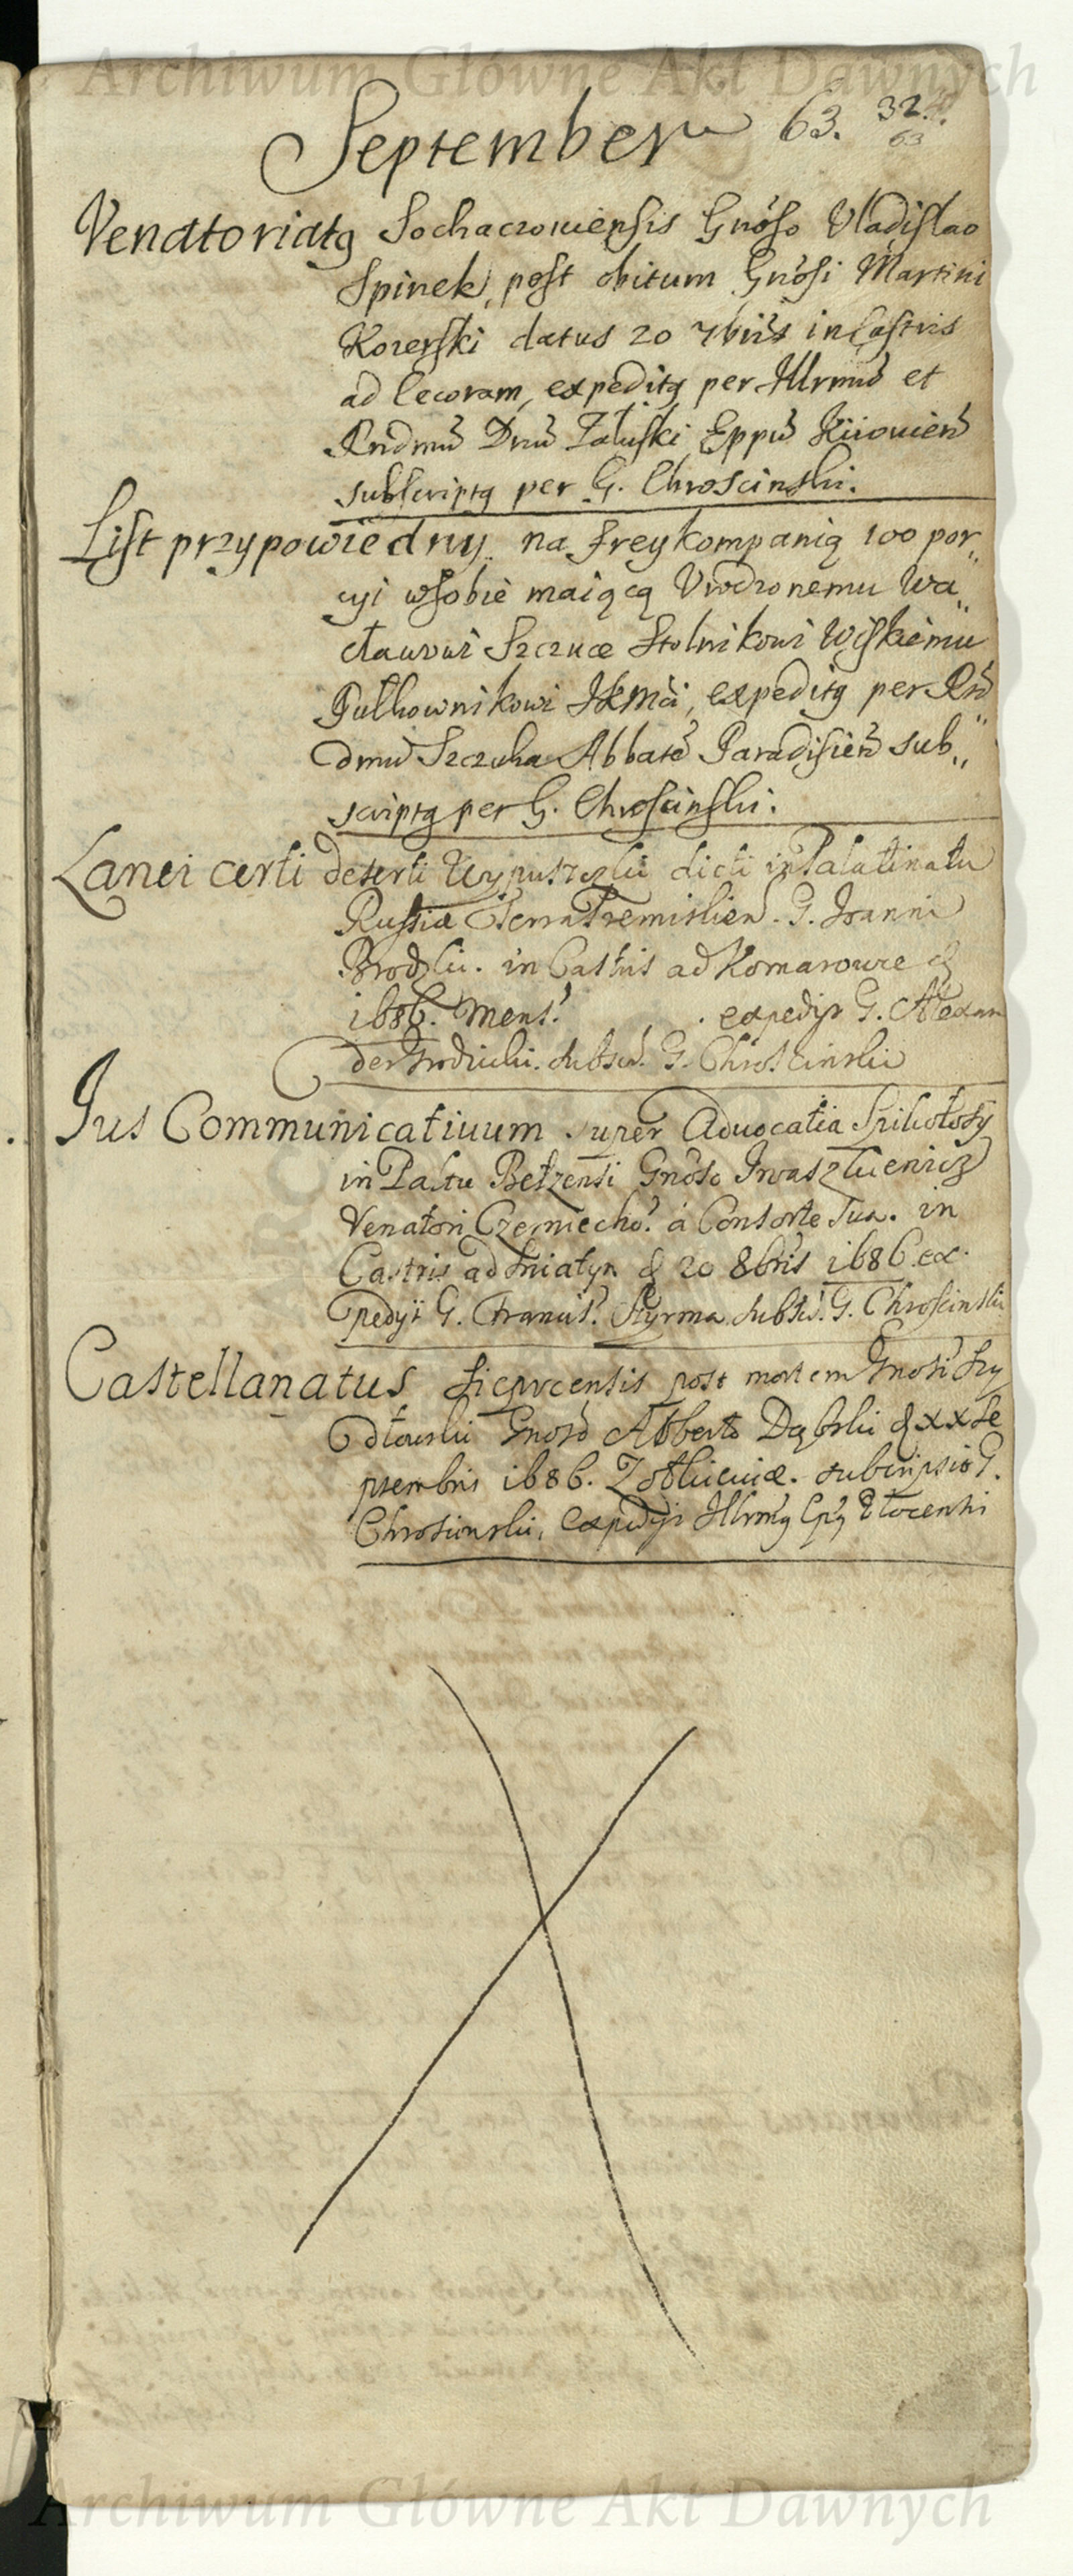 Archiwum Główne Akt Dawnych
September 63. 32.
63
Venatoriatq Sochaczouiensis Gnoso Vladislao
Spinek, post obitum Gnosi Martini
Kozerski datus 20 7bris in Castris
ad Cecoram, expeditq per Illrmu et
Rndmu Dnu Załuski Eppu Kiiouien
subscriptq per G. Chroscinski.
List przypowiedny na freykompanią 100 por„
cyi w sobie maiącą Vrodzonemu Wa„
cławowi Szczuce Stolnikowi Wiskiemu
Pułkownikowi JKMci, expeditq per Rn„
dmu Szczuka Abbate Paradisien sub„
scriptq per G. Chroscinski.
Lanei certi deserti dicti in Palatinatu
Russiae Terra Premislien. G. Joanni
in Castris ad Komarowce d
1686. Mens. expedijt G. Alexan
der subscr. G. Chroscinski
Jus Communicatiuum super Aduocatia
in Paltu Bełzensi Gnoso Iwaszkiewicz
Venatori Czerniecho. a Consorte sua. in
Castris ad Sniatyn d 20 8bris 1686. ex
pedijt G. Francis. Styrma subsc. G. Chroscinski
Castellanatus Sieprcensis post mortem Gnosi Szy
dłowski Gnoso Alberto Dąbski d xx Se
ptembris 1686. Zołkieuiae. subscripsit G.
Chroscinski, expedijt Illrmq Epq Płocensi
Archiwum Główne Akt Dawnych